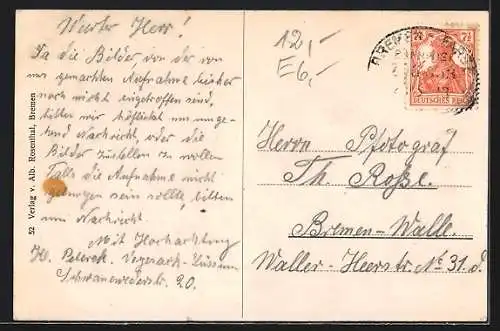 Werter Herr!
Da die Bilder von der von
uns gemachten Aufnahme bisher
noch nicht eingetroffen sind,
bitten wir höflichst um umge-
hend Nachricht, oder die
Bilder zustellen zu wollen
Falls die Aufnahme nicht
gelungen sein sollte, bitten
um Nachricht.
Mit Hochachtung
H. Vegesack-
Schwanewederstr. 20.
52 Verlag v. Alb. Rosenthal, Bremen
12,-
E6,-
BREMEN
7½
DEUTSCHES REICH
Herrn Photograf
Th. Roße.
Bremen-Walle.
Waller-Heerstr. No 31.